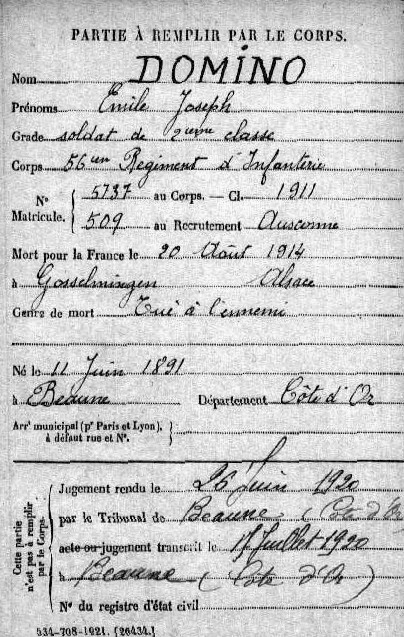 PARTIE À REMPLIR PAR LE CORPS.
Nom DOMINO
Prénoms Emile Joseph
Grade soldat de 2ième classe
Corps 56ème Régiment d'Infanterie
N° Matricule. { 5737 au Corps. — Cl. 1911
509 au Recrutement Auxonne
Mort pour la France le 20 Août 1914
à Gosselmingen Alsace
Genre de mort Tué à l'ennemi
Né le 11 Juin 1891
à Beaune Département Côte d'Or
Arr' municipal (p' Paris et Lyon), à défaut rue et N°. {
Cette partie n'est pas à remplir par le Corps.
Jugement rendu le 26 Juin 1920
par le Tribunal de Beaune (Côte d'Or
acte ou jugement transcrit le Juillet 1920
à Beaune (Côte d'Or)
N° du registre d'état civil
534-708-1921. [26434.]